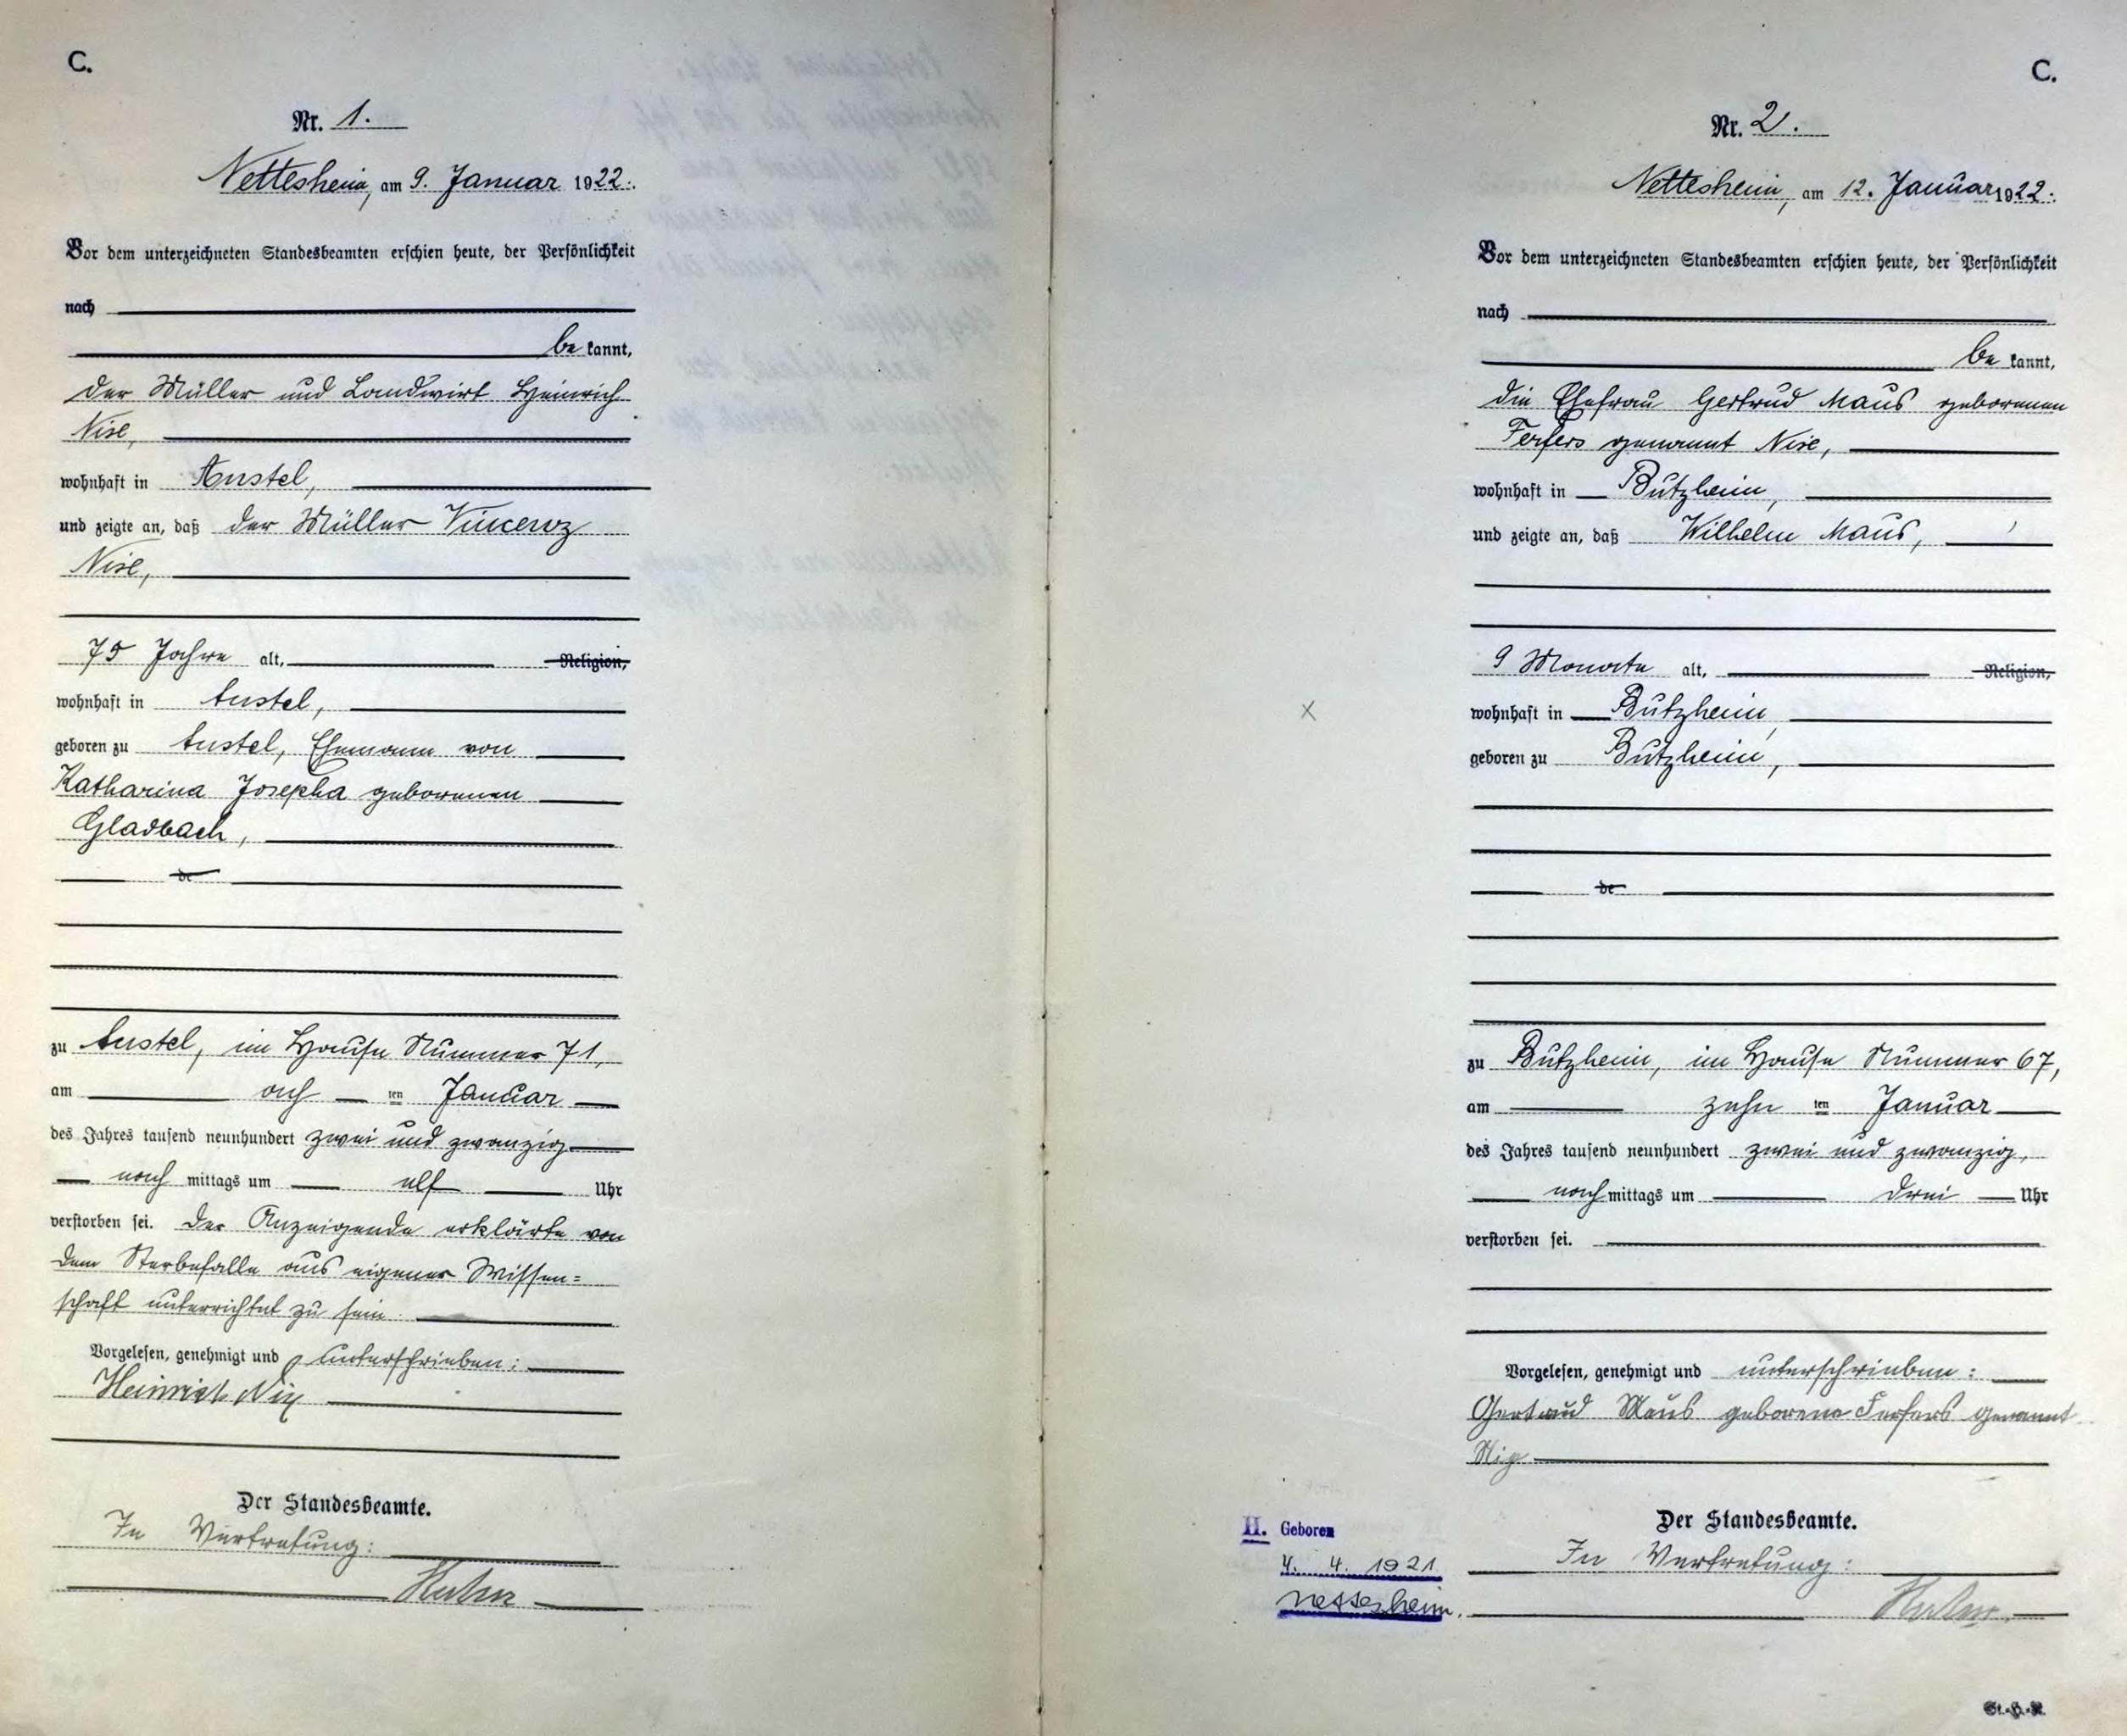 C.
Nr. 1.
Nettesheim, am 9. Januar 1922.
Vor dem unterzeichneten Standesbeamten erschien heute, der Persönlichkeit
nach
be kannt,
der Müller und Landwirt Heinrich
Nix,
wohnhaft in Anstel,
und zeigte an, daß der Müller Vincenz
Nix,
75 Jahre alt, Religion,
wohnhaft in Anstel,
geboren zu Anstel, Ehemann von
Katharina Josepha geborenen
Gladbach,
de
zu Anstel, im Hause Nummer 71,
am ach ten Januar
des Jahres tausend neunhundert zwei und zwanzig
nach mittags um elf Uhr
verstorben sei. Der Anzeigende erklärte von
dem Sterbefalle aus eigener Wissen=
schaft unterrichtet zu sein.
Vorgelesen, genehmigt und unterschrieben:
Heinrich Nix
Der Standesbeamte.
In Vertretung:
C.
Nr. 2.
Nettesheim, am 12. Januar 1922.
Vor dem unterzeichneten Standesbeamten erschien heute, der Persönlichkeit
nach
be kannt,
die Ehefrau Gertrud Maus geborenen
Ferfers genannt Nix,
wohnhaft in Butzheim,
und zeigte an, daß Wilhelm Maus,
9 Monate alt, Religion,
wohnhaft in Butzheim,
geboren zu Butzheim,
de
zu Butzheim, im Hause Nummer 67,
am zehn ten Januar
des Jahres tausend neunhundert zwei und zwanzig,
nach mittags um drei Uhr
verstorben sei.
Vorgelesen, genehmigt und unterschrieben:
Gertraud Maus geborene Ferfers genannt
Nix
Der Standesbeamte.
In Vertretung:
II. Geboren
4. 4. 1921
Nettesheim.
St.-H.-R.